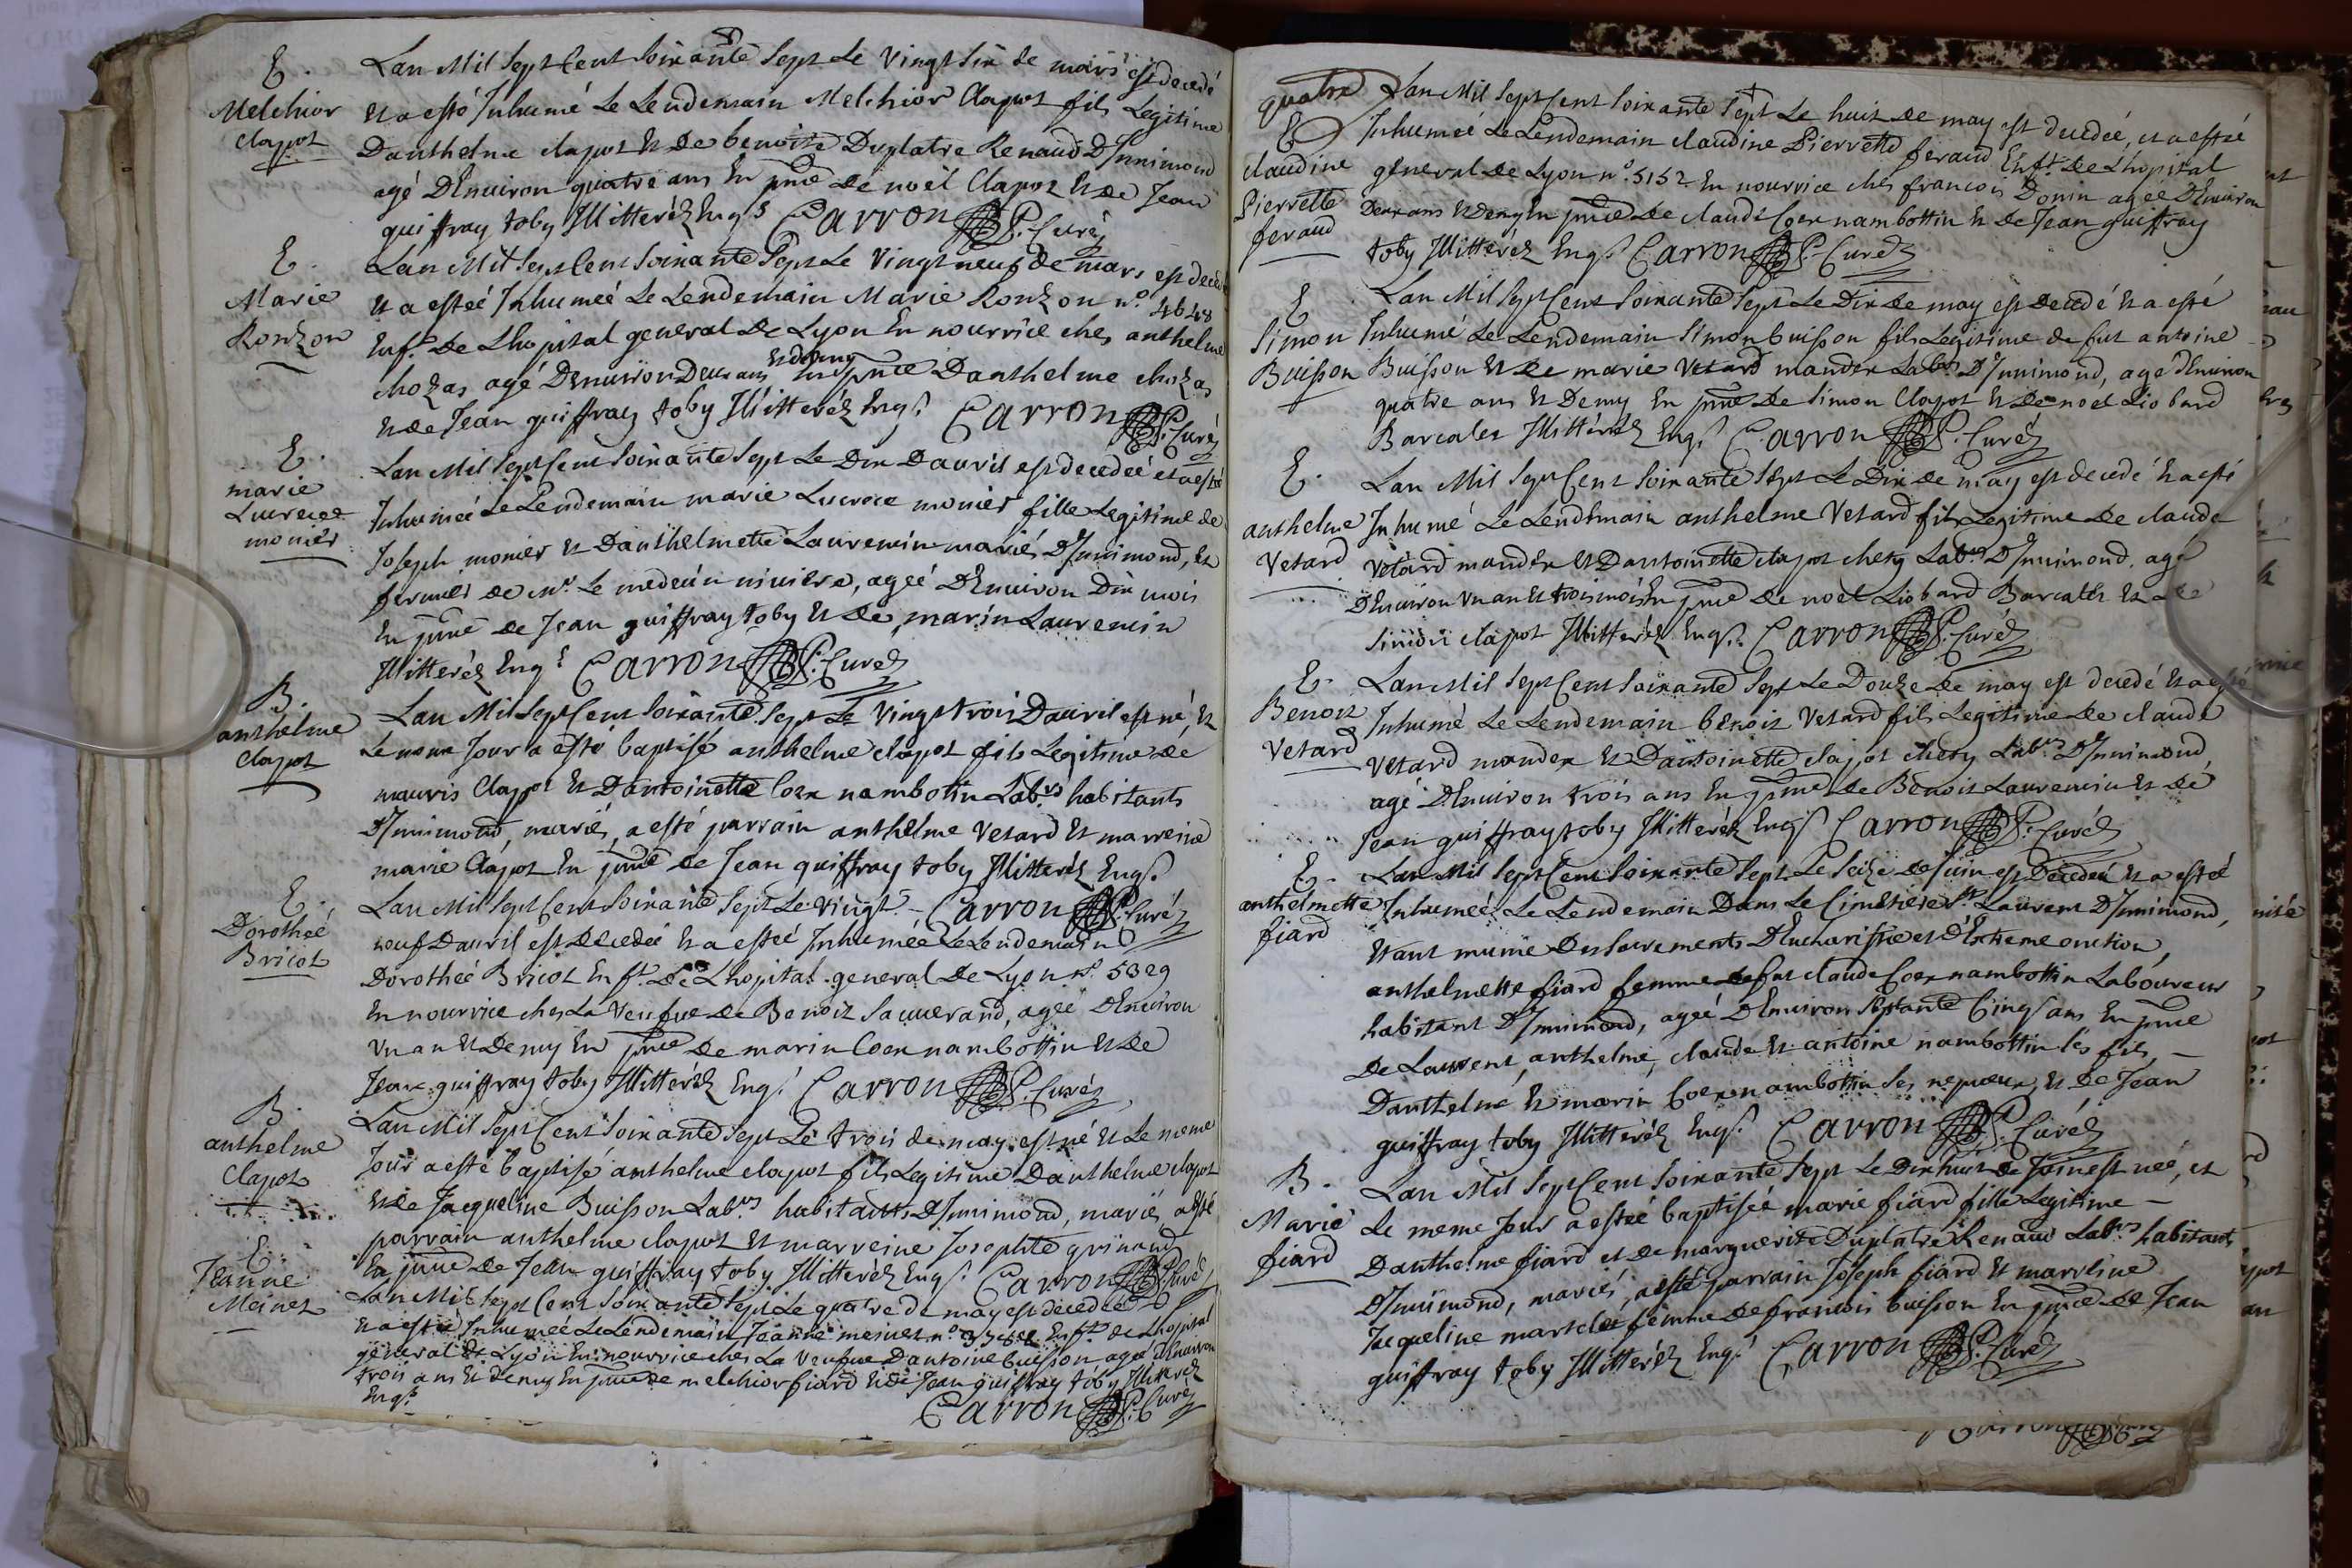 E.
Melchior
Clapot
Lan Mil Sept Cent Soixante Sept Le Vingt Six de mars est decedé
et a esté Inhumé Le Lendemain Melchior Clapot fils Legitime
Danthelme clapot et de benoite Duplatre Renaud D'Innimond
agé D'Environ quatre ans En pnce de noël Clapot et de Jean
guiffray toby Illitteréz Enqs Carron P. Curéz
E.
Marie
Ronzon
Lan Mil Sept Cent Soixante Sept Le Vingt neuf de mars est decedée
et a esteé Inhumeé Le Lendemain Marie Ronzon no. 4648
Enft. de Lhopital general de Lyon En nourrice ches anthelme
chozas agé D'environ Deux ans et demy En pnce Danthelme chozas
et de Jean guiffray toby Illitteréz Enqs Carron P. Curéz
E.
marie
Lucrece
monier
Lan Mil Sept Cent Soixante Sept Le Dix Davril est decedeé et a esté
Inhumeé Le Lendemain marie Lucrece monier fille Legitime de
Joseph monier et Danthelmette Laurencin mariés D'Innimond, et
fermier de Mr. Le medecin niviere, ageé D'Environ Dix mois
En pnce de Jean guiffray toby et de marin Laurencin
Illitteréz Enqs Carron P. Curéz
B.
anthelme
Clapot
Lan Mil Sept Cent Soixante Sept Le Vingt trois Davril est né, et
Le meme Jour a esté baptisé anthelme clapot fils Legitime de
mauris Clapot et Dantoinette Coex nambotin Labrs habitants
D'Innimond, mariés, a esté parrain anthelme Vetard et marreine
marie Clapot En pnce de Jean guiffray toby Illitteréz Enqs
E.
Dorotheé
Bricot
Lan Mil Sept Cent Soixante Sept Le Vingt - Carron P. Curéz
neuf Davril est Decedeé et a esteé Inhumée Le Lendemain
Dorotheé Bricot Enft. de Lhopital general de Lyon no. 5329
En nourrice ches La Veufue de Benoit Sauuerand, ageé D'Environ
Vn an et Demy En pnce de marin Coex nambottin et de
Jean guiffray toby Illitteréz Enqs Carron P. Curéz
B.
anthelme
Clapot
Lan Mil Sept Cent Soixante Sept Le trois de may est né et Le meme
Jour a esté baptisé anthelme clapot fils Legitime Danthelme clapot
et de Jacqueline Buisson Labrs habitants D'Innimond, mariés, a esté
parrain anthelme clapot et marreine Josephte grinand
En pnce de Jean guiffray toby Illitteréz Enqs Carron P. Curéz
E.
Jeanne
Meinet
Lan Mil Sept Cent Soixante Sept Le quatre de may est decedeé
et a esteé Inhumeé Le Lendemain Jeanne meinet no. Enft. de Lhopital
general de Lyon En nourrice ches La Veufue Dantoine buisson ageé D'Environ
trois ans et Demy En pnce de melchior fiard et de Jean guiffray toby Illitteréz
Enqs Carron P. Curéz
quatre
E
claudine
Pierrette
feraud
Lan Mil Sept Cent Soixante Sept Le huit de may est decedeé, et a esteé
Inhumeé Le Lendemain claudine Pierrette feraud Enft. de Lhopital
general de Lyon no. 5152 En nourrice ches francois Donin ageé D'Environ
Deux ans et demy En pnce de claude Coex nambottin et de Jean guiffray
toby Illitteréz Enqs Carron P. Curéz
E
Simon
Buisson
Lan Mil Sept Cent Soixante Sept Le Dix de may est decedé et a esté
Inhumé Le Lendemain Simon buisson fils Legitime de fut antoine
Buisson et de marie Vetard mander Labrs D'Innimond, agé d'Environ
quatre ans et Demy En pnce de Simon Clapot et de noel Liobard
Barcalet Illitteréz Enqs Carron P. Curéz
E.
anthelme
Vetard
Lan Mil Sept Cent Soixante Sept Le Dix de may est decedé et a esté
Inhumé Le Lendemain anthelme Vetard fils Legitime de claude
Vetard mander et Dantoinette clapot chety Labrs D'Innimond, agé
D'Environ Vn an et trois mois En pnce de noël Liobard Barcalet et de
Simon clapot Illitteréz Enqs Carron P. Curéz
E.
Benoit
Vetard
Lan Mil Sept Cent Soixante Sept Le Douze de may est decedé et a esté
Inhumé Le Lendemain benoit Vetard fils Legitime de claude
Vetard mander et Dantoinette clapot chety Labrs D'Innimond,
agé D'Environ trois ans En pnce de Benoit Laurencin et de
Jean guiffray toby Illitteréz Enqs Carron P. Curéz
E.
anthelmette
fiard
Lan Mil Sept Cent Soixante Sept Le Seize de Juin est Decedeé et a esteé
Inhumeé Le Lendemain Dans Le Cimetiere St. Laurent D'Innimond,
Etant munie Des Sacrements D'Eucharistie et D'Extreme onction,
anthelmette fiard femme de fut claude Coex nambottin Laboureur
habitant D'Innimond, ageé D'Environ Septante Cinq ans En pnce
de Laurent, anthelme, claude et antoine nambottin ses fils, -
Danthelme et marin Coex nambottin ses nepveux, et de Jean
guiffray toby Illitteréz Enqs Carron P. Curéz
B.
Marie
fiard
Lan Mil Sept Cent Soixante Sept Le Dix huit de Juin est neé, et
Le meme Jour a esteé baptiseé marie fiard fille Legitime -
Danthelme fiard et de marguerite Duplatre Renaud Labrs habitants
D'Innimond, mariés, a esté parrain Joseph fiard et marreine
Jacqueline martelet femme de francois buisson En pnce de Jean
guiffray toby Illitteréz Enqs Carron P. Curéz